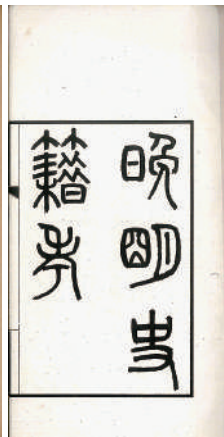 晚明史
籍考